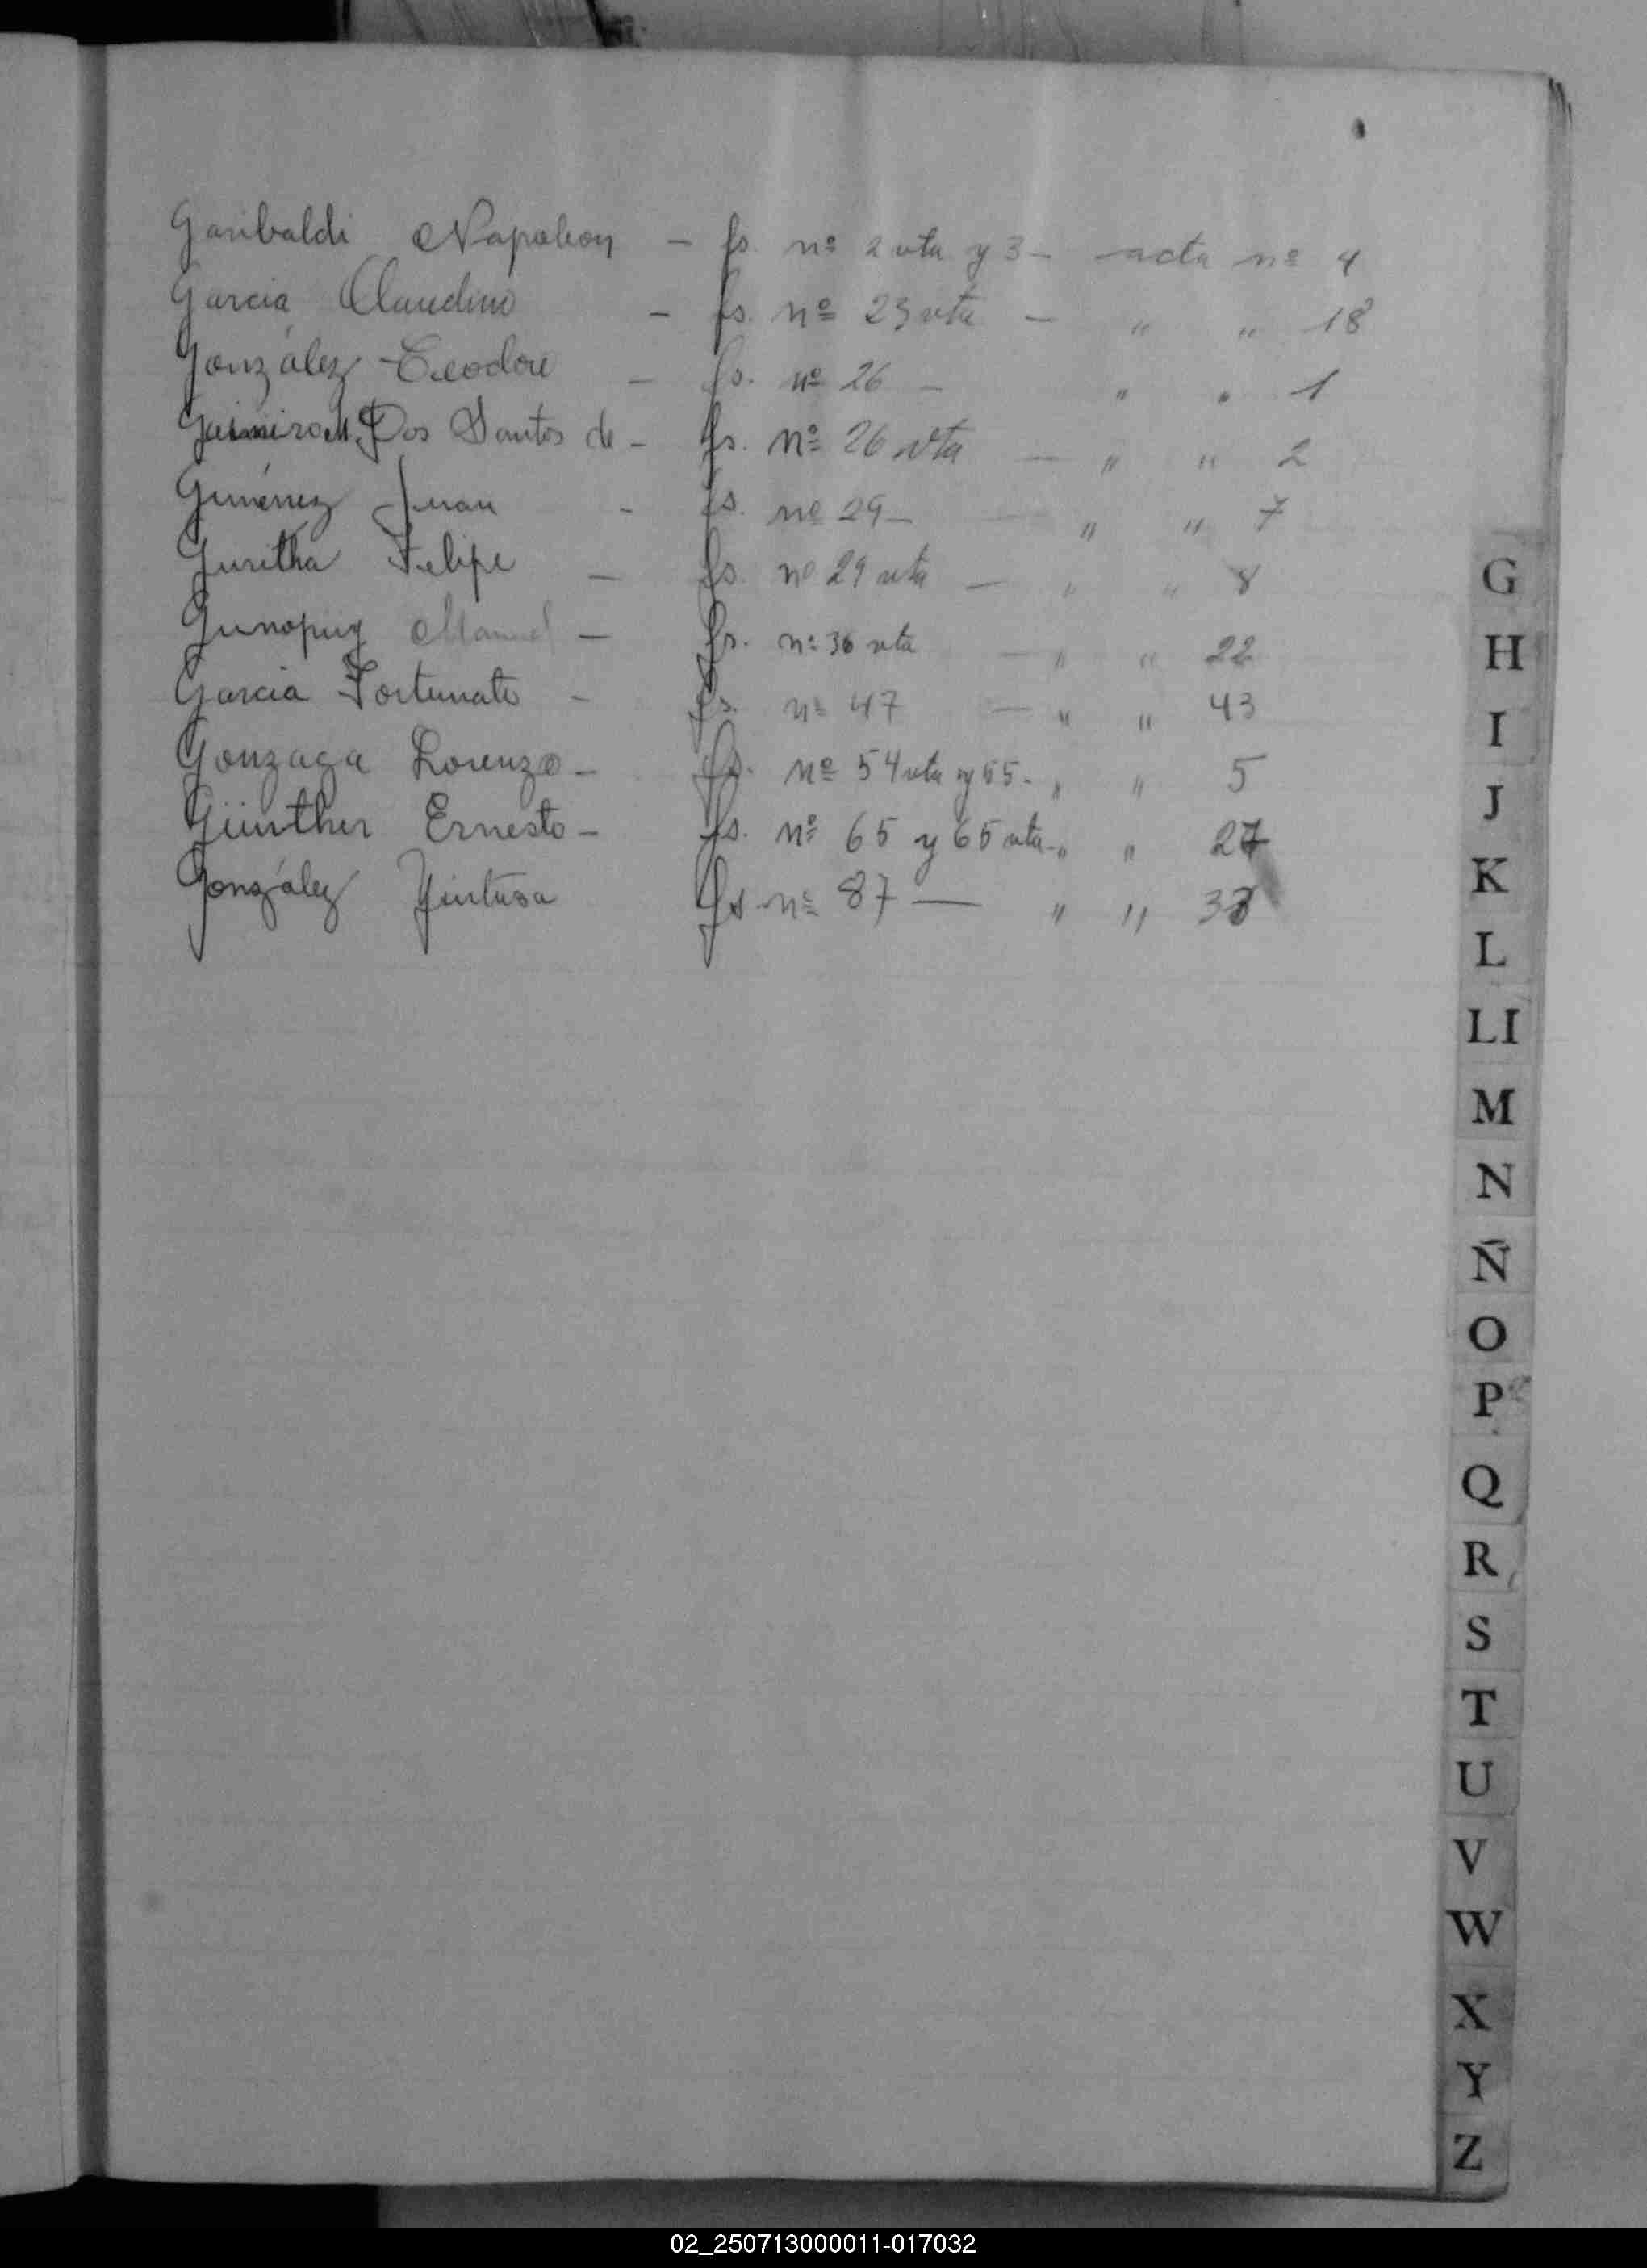 Garibaldi Napoleon - fs. nº 2 vta y 3 - acta nº 4
Garcia Claudino - fs. nº 23 vta - " " 18
González Teodoro - fs. nº 26 - " " 1
Dos Santos de - fs. nº 26 vta - " " 2
Giménez Juan - fs. nº 29 - " " 7
Guritha Felipe - fs. nº 29 vta - " " 8
Manuel - fs. nº 36 vta - " " 22
Garcia Fortunato - fs. nº 47 - " " 43
Gonzaga Lorenzo - fs. nº 54 vta y 55 - " " 5
Günther Ernesto - fs. nº 65 y 65 vta - " " 27
González fs. nº 87 — " " 33
G
H
I
J
K
L
LI
M
N
Ñ
O
P
Q
R
S
T
U
V
W
X
Y
Z
02_250713000011-017032